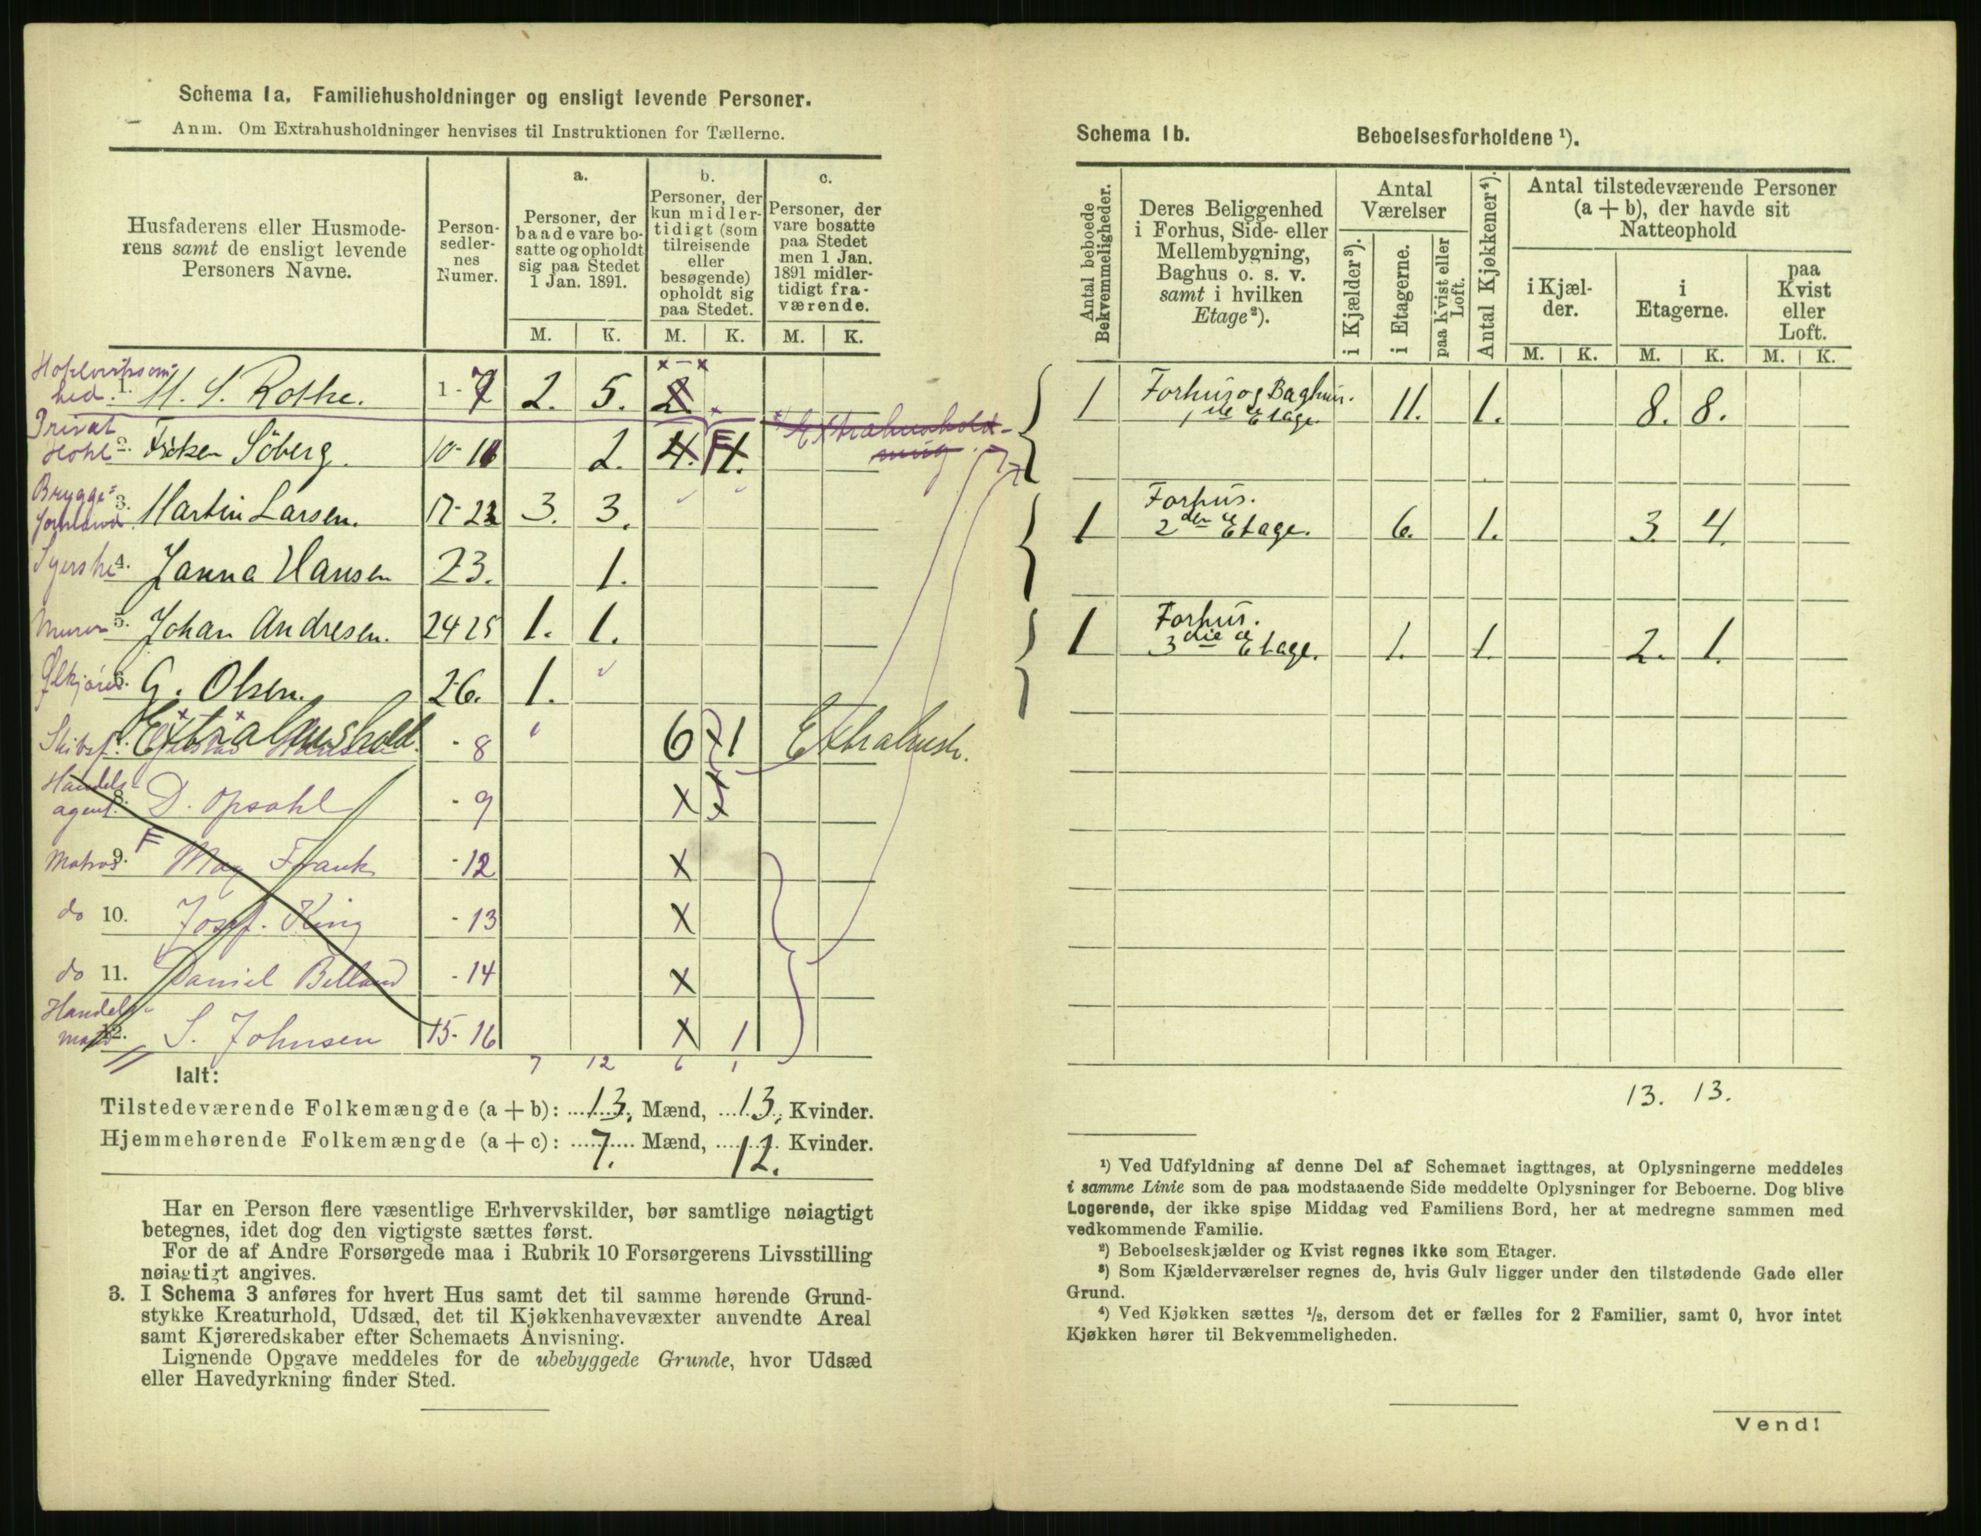 Schema 1a. Familiehusholdninger og ensligt levende Personer.
Anm. Om Extrahusholdninger henvises til Instruktionen for Tællerne.
Husfaderens eller Husmode-
rens samt de ensligt levende
Personers Navne.
Person-
sedler-
nes
Numer.
a.
Personer, der
baade vare bo-
satte og opholdt
sig paa Stedet
1 Jan. 1891.
b.
Personer, der
kun midler-
tidigt (som
tilreisende
eller
besøgende)
opholdt sig
paa Stedet.
c.
Personer, der
vare bosatte
paa Stedet
men 1 Jan.
1891 midler-
tidigt fra-
værende.
M. K. M. K. M. K.
1. Rothe. 1-7 2. 5. 2
Privat
Hotel 2. Frøken Söberg. 10-11 2. 4. 1. Extrahushold-
ning
Brygge-
3. Martin Larsen. 17-22 3. 3.
Syerske 4. Janna Hansen 23. 1.
Murer 5. Johan Andresen. 24 25 1. 1.
6. G. Olsen. 26. 1.
Extrahushold. - 8 6 1 Extrahush.
Handels-
agent 8. D. Opsahl - 9 x x
Matros 9. F May Frank - 12 x
do 10. Josef. King - 13 x
do 11. Daniel Billand - 14 x
Handels-
12. S. Johnsen 15-16 x 1
7 12 6 1
Ialt:
Tilstedeværende Folkemængde (a + b): 13. Mænd, 13. Kvinder.
Hjemmehørende Folkemængde (a + c): 7. Mænd, 12. Kvinder.
Har en Person flere væsentlige Erhvervskilder, bør samtlige nøiagtigt
betegnes, idet dog den vigtigste sættes først.
For de af Andre Forsørgede maa i Rubrik 10 Forsørgerens Livsstilling
nøiagtigt angives.
3. I Schema 3 anføres for hvert Hus samt det til samme hørende Grund-
stykke Kreaturhold, Udsæd, det til Kjøkkenhavevæxter anvendte Areal
samt Kjøreredskaber efter Schemaets Anvisning.
Lignende Opgave meddeles for de ubebyggede Grunde, hvor Udsæd
eller Havedyrkning finder Sted.
Schema 1b. Beboelsesforholdene ¹).
Antal beboede
Bekvemmeligheder.
Deres Beliggenhed
i Forhus, Side- eller
Mellembygning,
Baghus o. s. v.
samt i hvilken
Etage²).
Antal
Værelser
i Kjælder³).
i Etagerne.
paa Kvist eller
Loft.
Antal Kjøkkener⁴).
Antal tilstedeværende Personer
(a + b), der havde sit
Natteophold
i Kjæl-
der.
i
Etagerne.
paa
Kvist
eller
Loft.
M. K. M. K. M. K.
1 Forhus og Baghus.
1ste Etage. 11. 1. 8. 8.
1 Forhus.
2den Etage. 6. 1. 3. 4.
1 Forhus.
3die Etage. 1. 1. 2. 1.
13. 13.
¹) Ved Udfyldning af denne Del af Schemaet iagttages, at Oplysningerne meddeles
i samme Linie som de paa modstaaende Side meddelte Oplysninger for Beboerne. Dog blive
Logerende, der ikke spise Middag ved Familiens Bord, her at medregne sammen med
vedkommende Familie.
²) Beboelseskjælder og Kvist regnes ikke som Etager.
³) Som Kjælderværelser regnes de, hvis Gulv ligger under den tilstødende Gade eller
Grund.
⁴) Ved Kjøkken sættes ½, dersom det er fælles for 2 Familier, samt 0, hvor intet
Kjøkken hører til Bekvemmeligheden.
Vend!